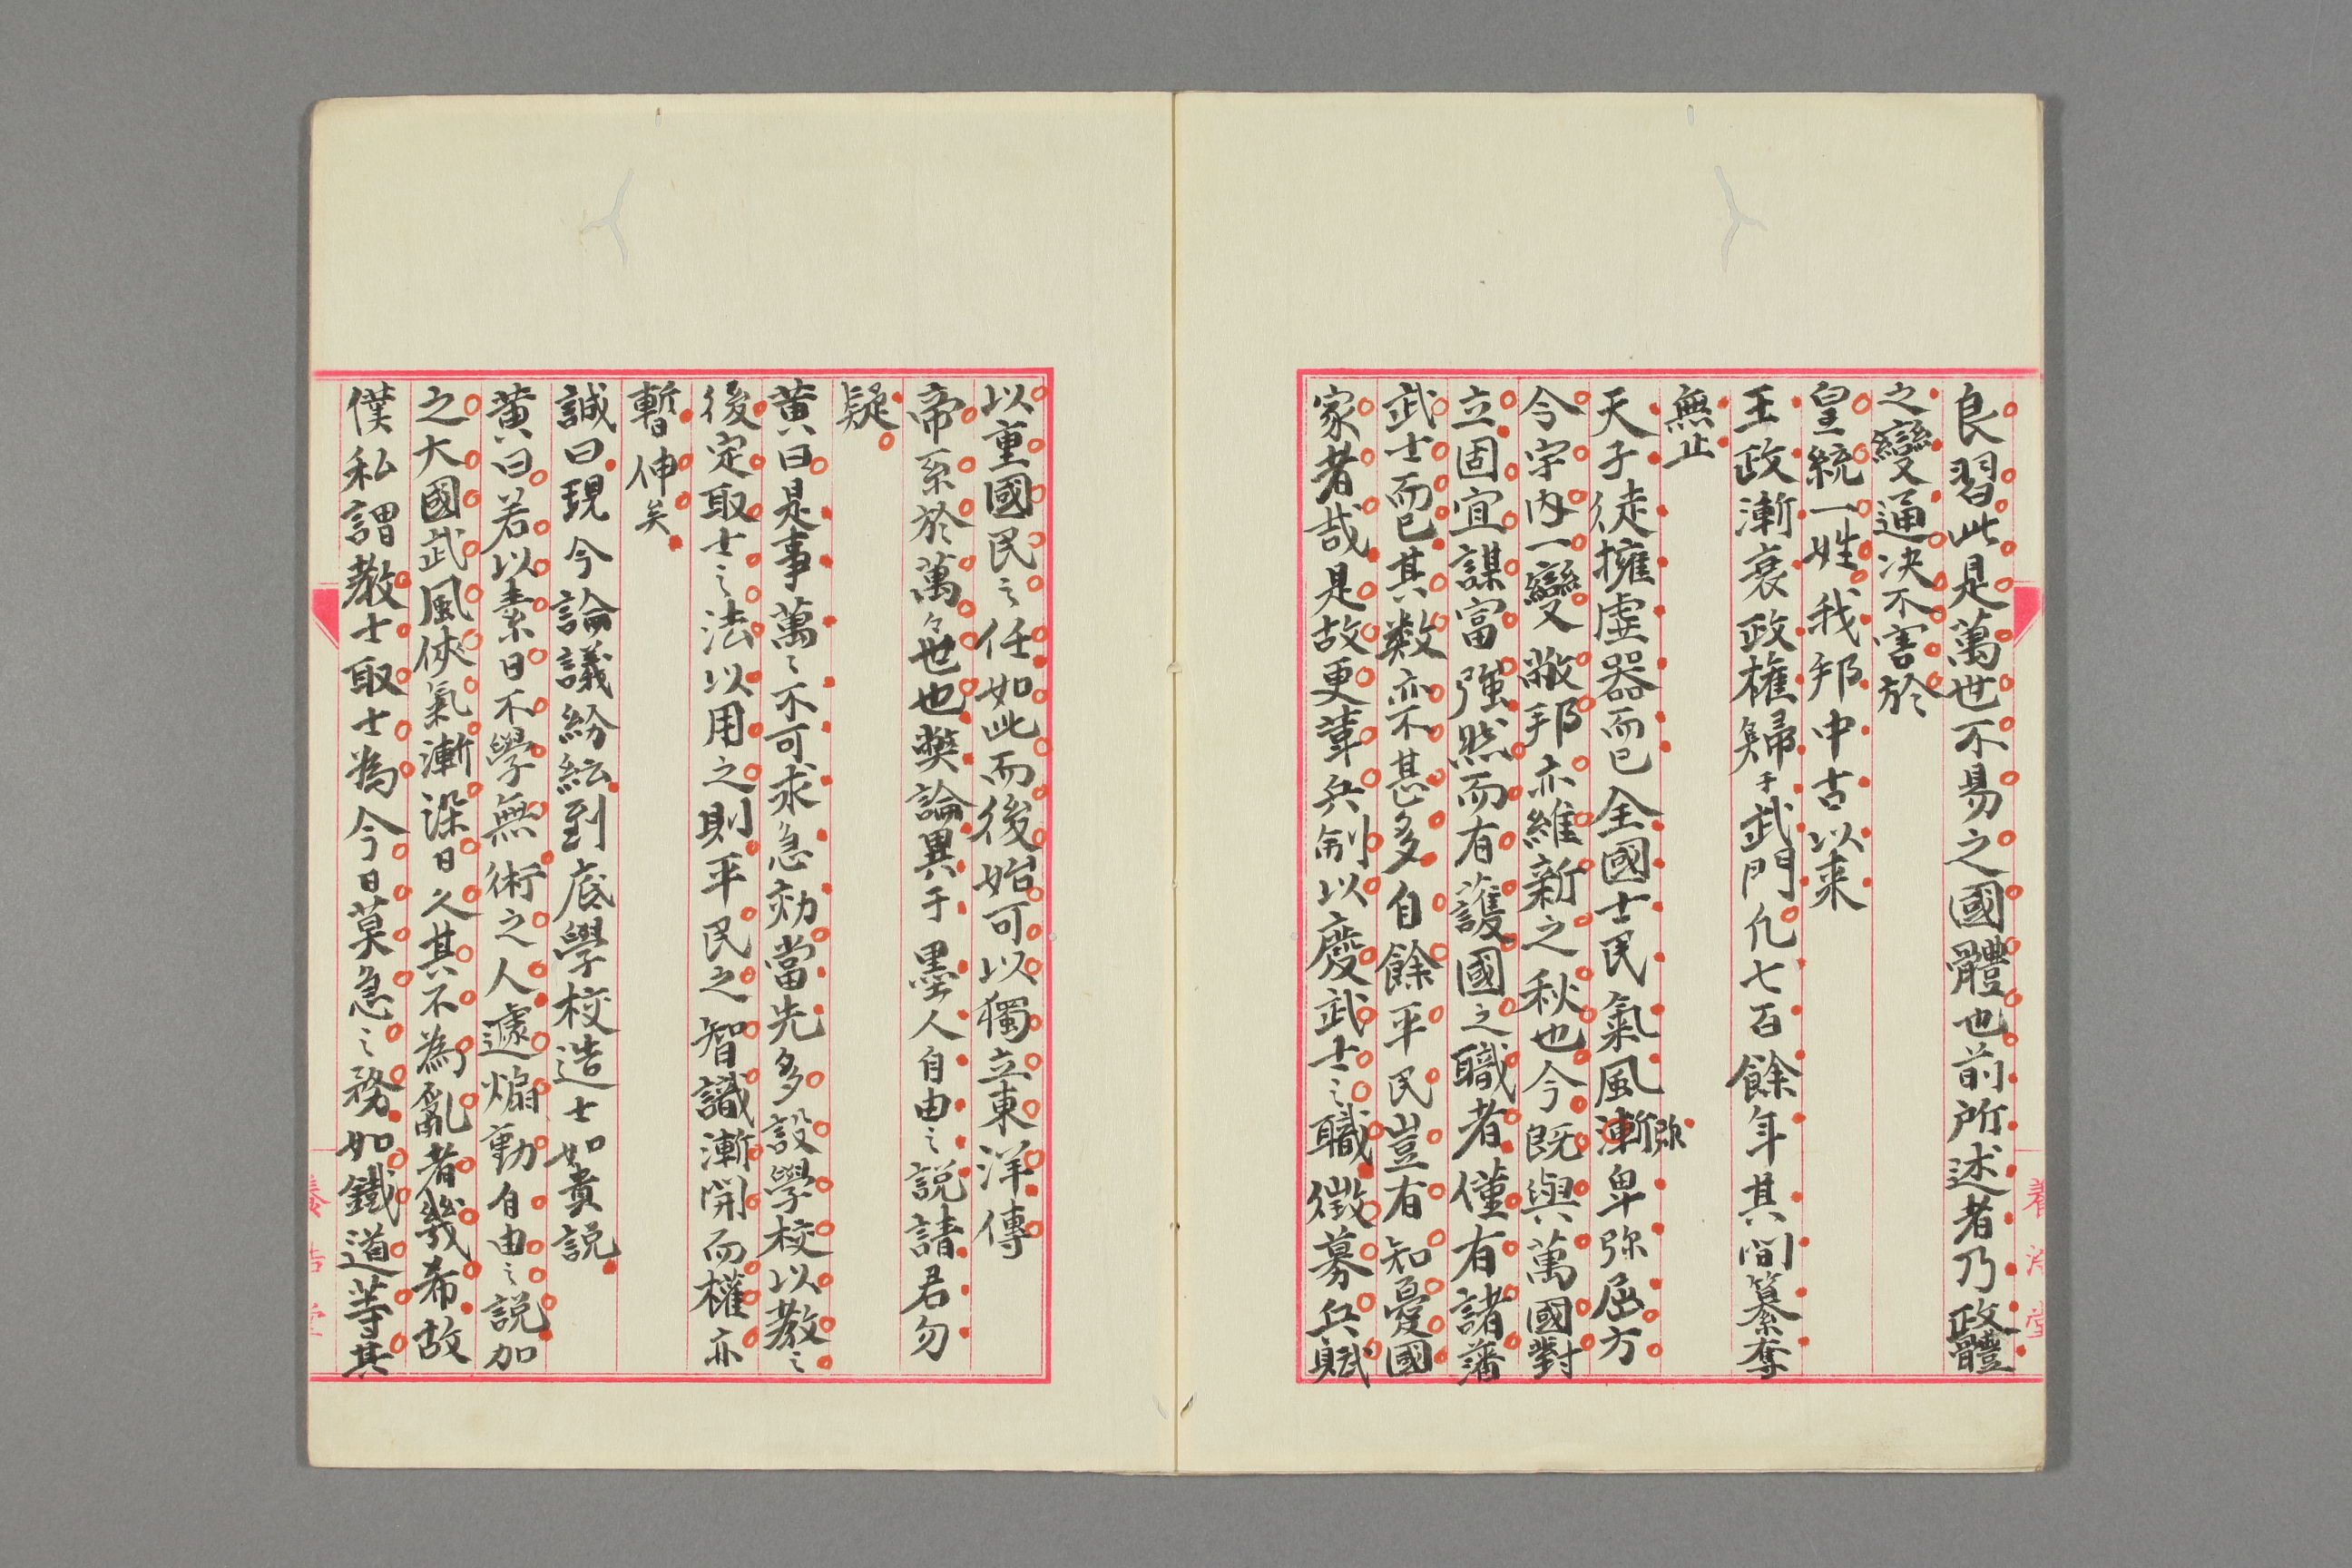 良習此是萬世不易之國體也前所述者乃政體
之變通决不害於
皇統一姓我邦中古以来
王政漸衰政權歸于武門凢七百餘年其間簒奪
無止
天子徒擁虚器而已全國士民氣風漸卑弥屈方
弥
今宇内一變敝邦亦維新之秋也今既與萬國對
立固宜謀富强然而有護國之職者僅有諸藩
武士而已其数亦不甚多自餘平民豈有知憂國
家者哉是故更革兵制以廢武士之職徴募兵賦
以重國民之任如此而後始可以獨立東洋傳
帝系於萬々世也弊論異于墨人自由之説請君勿
疑
黄曰是事萬〻不可求急効當先多設學校以教之
後定取士之法以用之則平民之智識漸開而權亦
暫伸矣
誠曰現今論議紛紜到底學校造士如貴説
黄曰若以素日不學無術之人遽煽動自由之説加
之大國武風侠氣漸染日久其不為亂者幾希故
僕私謂教士取士為今日莫急之務如鐵道等其